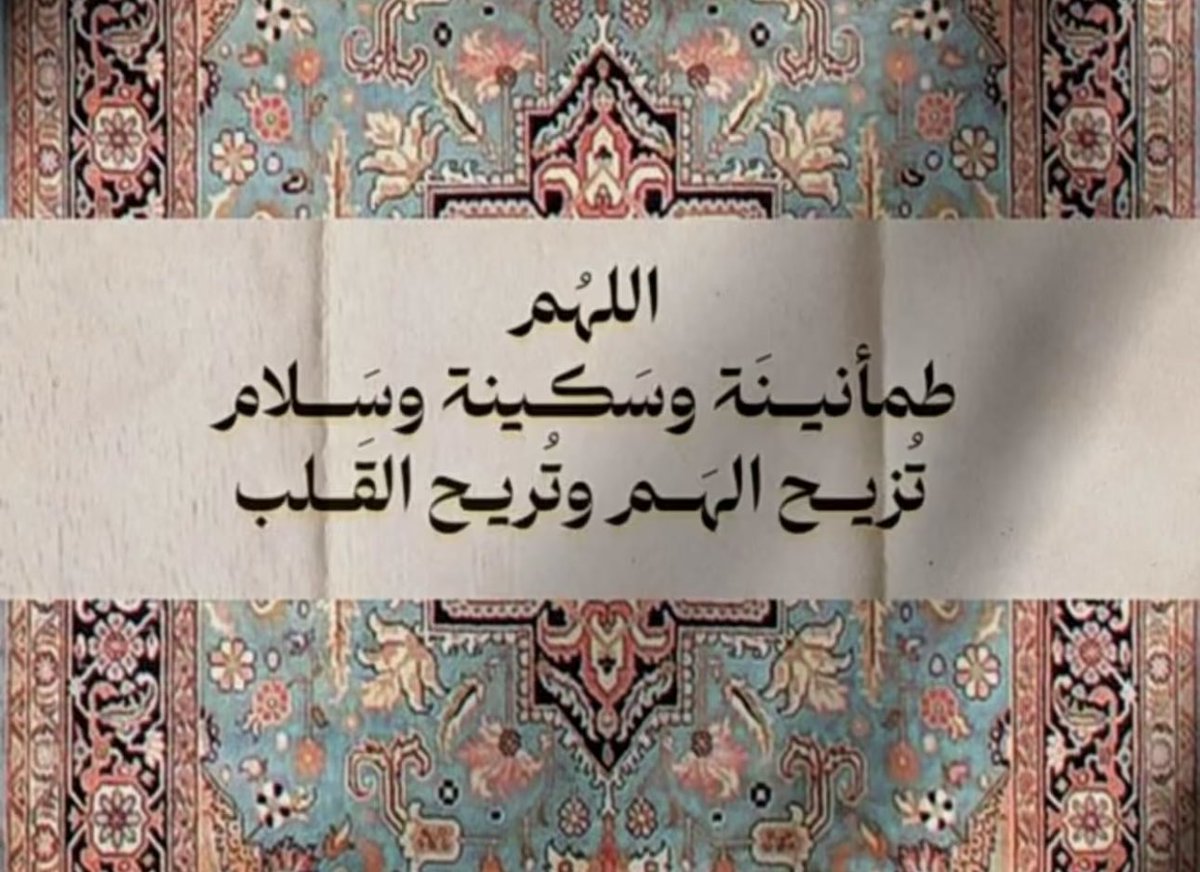 اللهُم
طمأنينَة وسَكينة وسَلام
تُزيح الهَم وتُريح القَلب